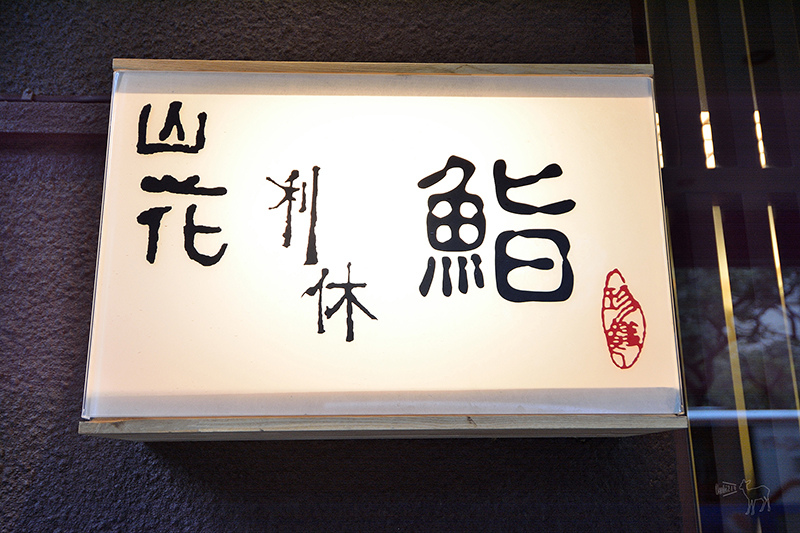 山花
利休
鮨